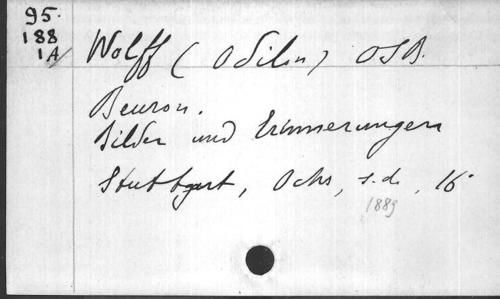 95.
188
1A
Wolff (Odilon) OSB.
Beuron.
Bilder und Erinnerungen
Stuttgart, Ochs, s.d., 16°
1889